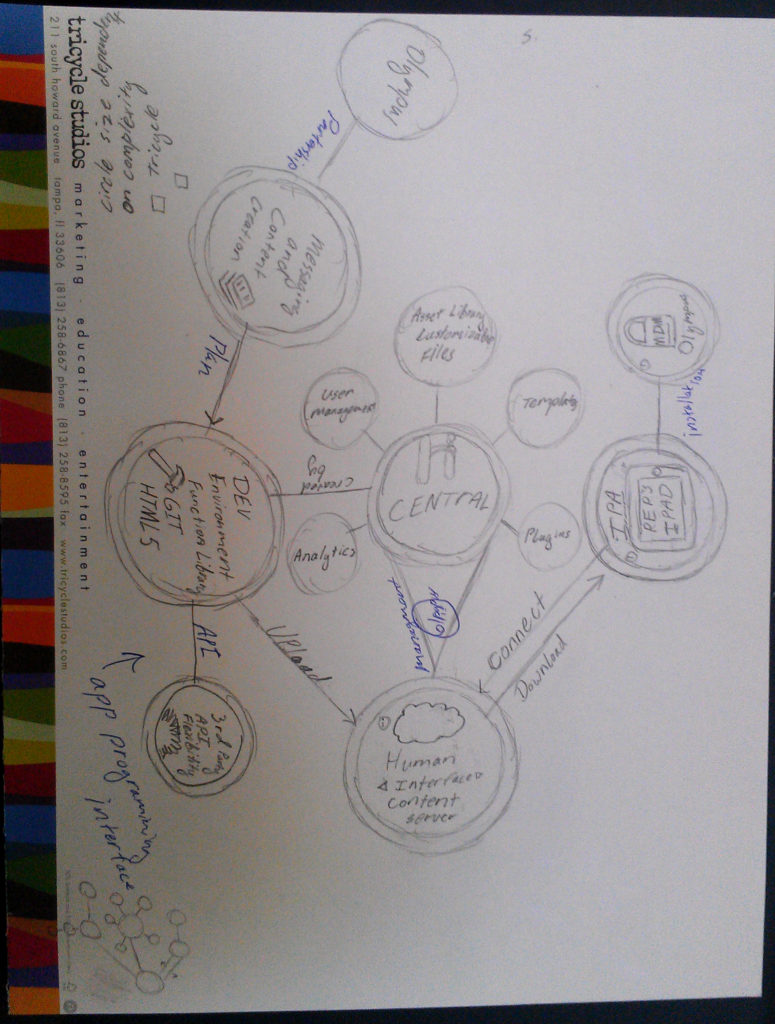 Olympus
Partnership
Messaging
and
Content
Creation
Plan
DEV
Environment
Function Library
GIT
HTML5
created
by
CENTRAL
User
management
Asset Library
Customizable
Files
Templates
Plugins
Analytics
API
3rd Party
API
Flexibility
Upload
management
Human
Interfaced
Content
Server
Connect
Download
IPA
REP'S
IPAD
installation
MDM
Olympus
app programming
interface
circle size dependent
on complexity
Tricycle
tricycle studios marketing · education · entertainment
211 south howard avenue tampa, fl 33606 (813) 258-6867 phone (813) 258-8595 fax www.tricyclestudios.com